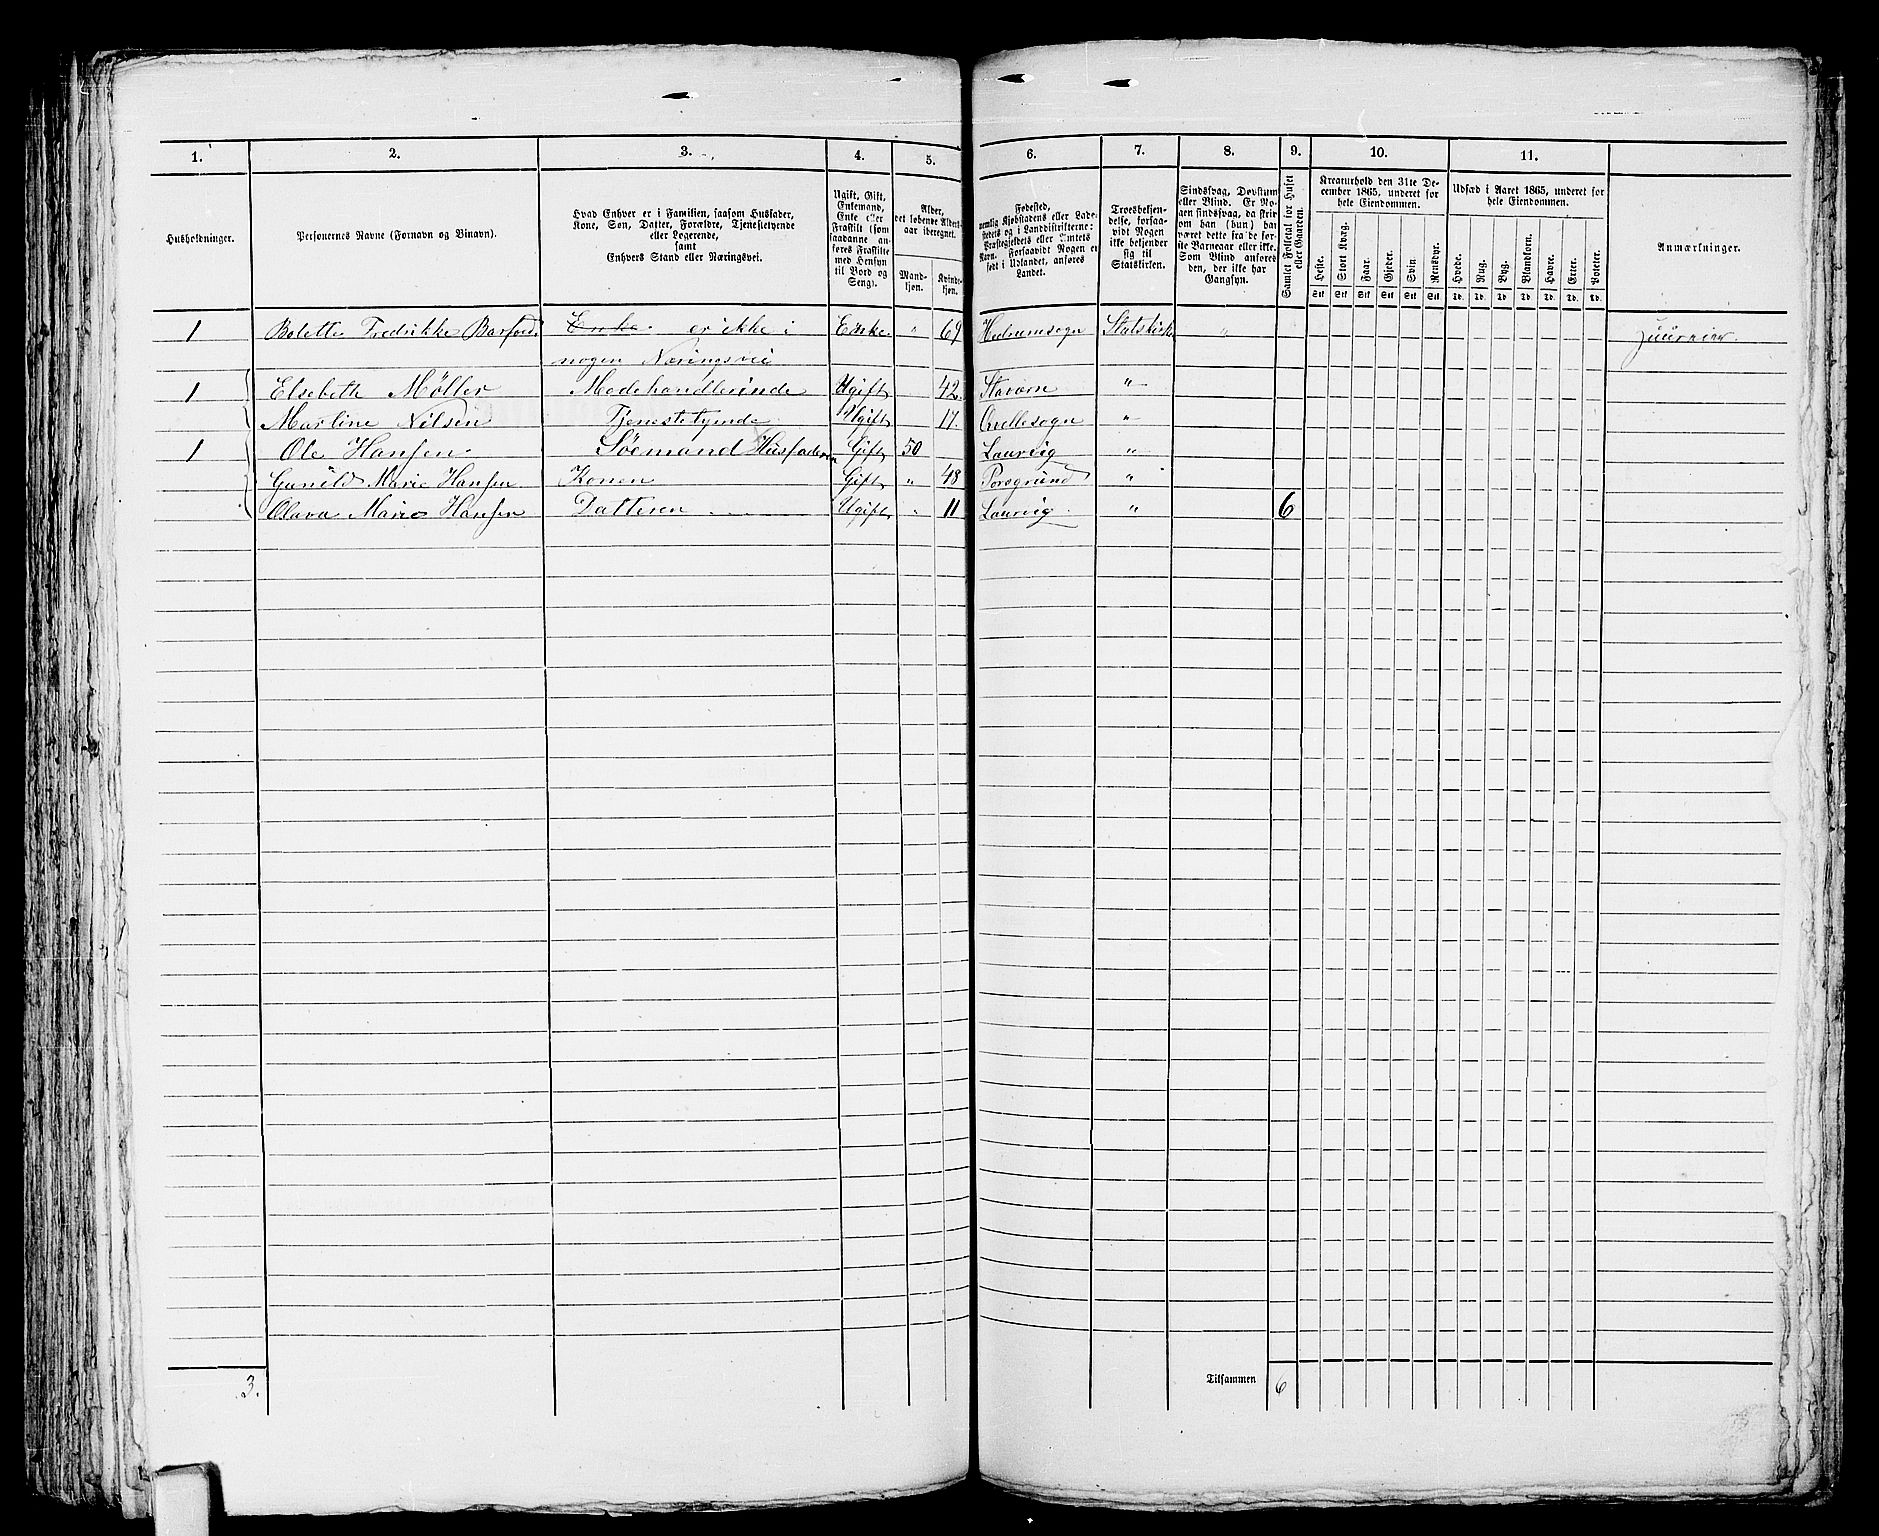 1. 2. 3. 4. 5. 6. 7. 8. 9. 10. 11.
Husholdninger.
Personernes Navne (Fornavn og Binavn).
Hvad Enhver er i Familien, saasom Husfader,
Kone, Søn, Datter, Forældre, Tjenestetyende
eller Logerende,
samt
Enhvers Stand eller Næringsvei.
Ugift, Gift,
Enkemand,
Enke eller
Fraskilt (som
saadanne an-
føres Fraskilte
med Hensyn
til Bord og
Seng).
Alder,
det løbende Alders-
aar iberegnet.
Mand-
kjøn.
Kvinde-
kjøn.
Fødested,
nemlig Kjøbstadens eller Lade-
stedets og i Landdistrikterne:
Præstegjeldets eller Amtets
Navn. Forsaavidt Nogen er
født i Udlandet, anføres
Landet.
Troesbekjen-
delse, forsaa-
vidt Nogen
ikke bekjender
sig til
Statskirken.
Sindssvag, Døvstum
eller Blind. Er No-
gen sindssvag, da skrives
om han (hun) har
været dette fra de før-
ste Barneaar eller ikke.
Som Blind anføres
den, der ikke har
Gangsyn.
Samlet Folketal for Huset
eller Gaarden.
Kreaturhold den 31te De-
cember 1865, underet for
hele Eiendommen.
Heste. Stort Kvæg. Faar. Gjeder. Svin Rensdyr.
Stk Stk Stk Stk Stk Stk
Udsæd i Aaret 1865, underet for
hele Eiendommen.
Hvede. Rug. Byg. Blandkorn. Havre. Erter. Poteter.
Td. Td. Td. Td. Td. Td. Td.
Anmærkninger.
1 Bolette Fredrikke Barfoed. Enke. er ikke i Enke. " 69 Hedrumsogn Statskirk "
nogen Næringsvei
1 Elsebeth Møller Modehandlerinde Ugift 42. Stavern "
Martine Nilsen Tjenestetyende Ugift 17. Qvellesogn "
1 Ole Hansen. Söemand Husfaderen Gift 50 Laurvig "
Gunild Marie Hansen. Konen Gift " 48 Porsgrund "
Olava Marie Hansen Datteren Ugift " 11 Laurvig. " 6
3. Tilsammen 6